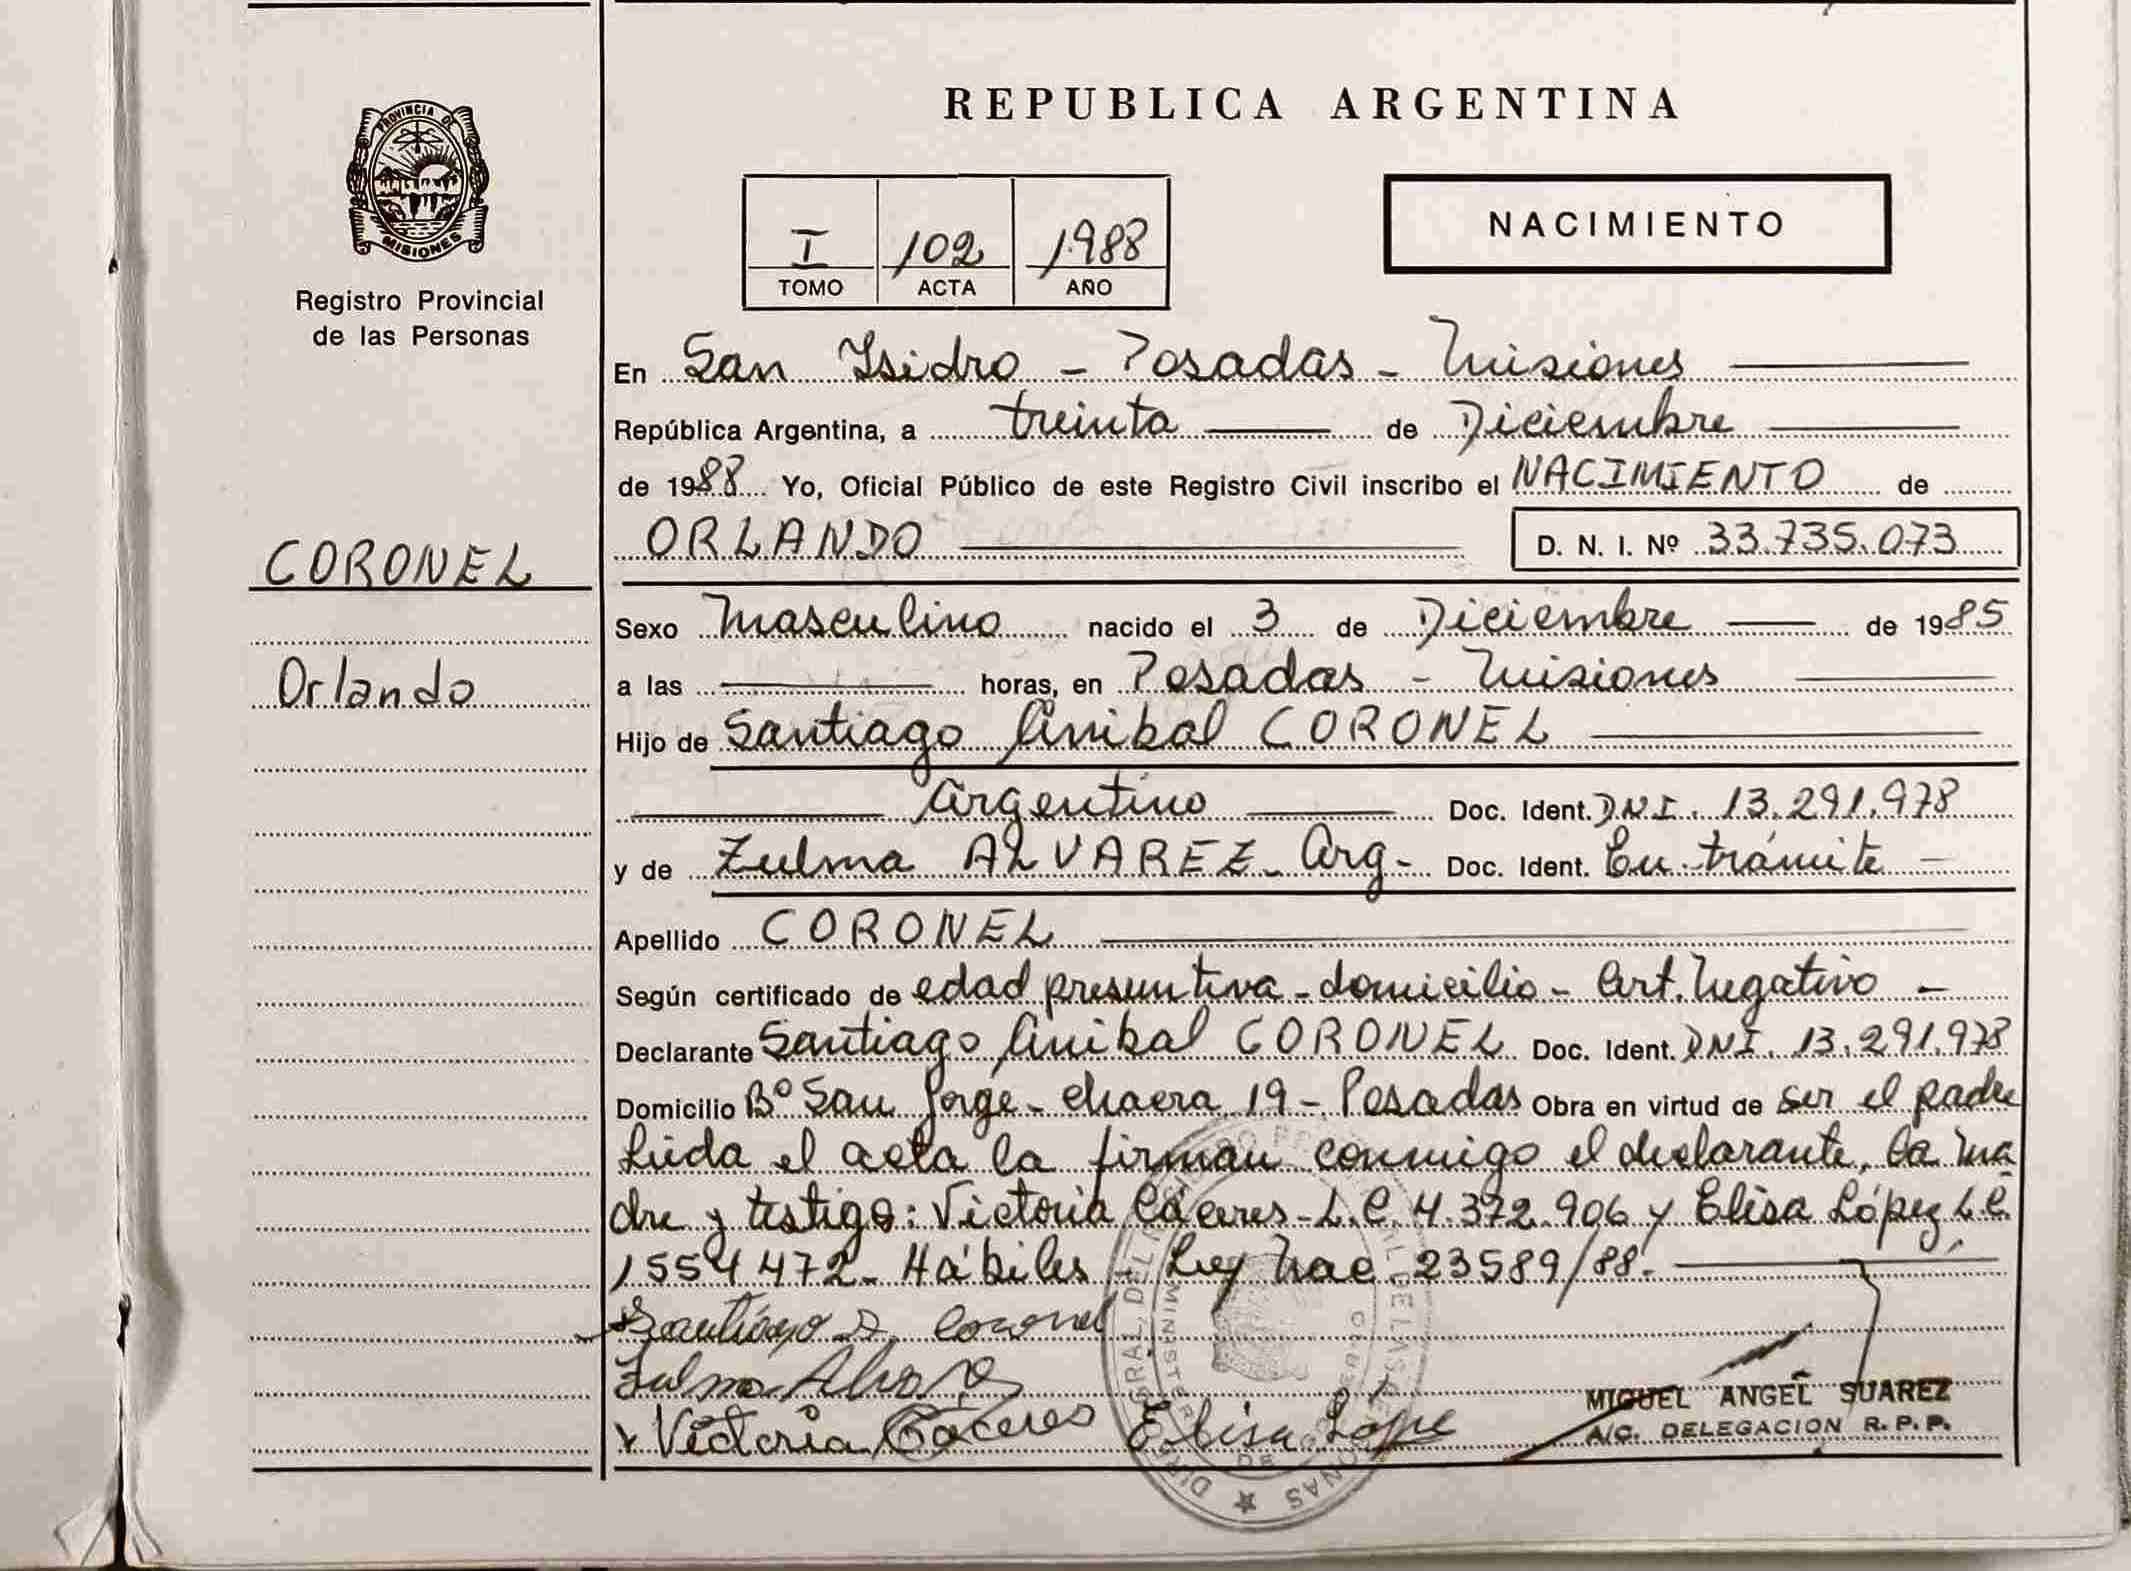 REPUBLICA ARGENTINA
PROVINCIA DE
MISIONES
Registro Provincial
de las Personas
NACIMIENTO
I 102 1988
TOMO ACTA AÑO
En San Isidro - Posadas - Misiones
República Argentina, a treinta de Diciembre
de 1988 Yo, Oficial Público de este Registro Civil inscribo el NACIMIENTO de
CORONEL
ORLANDO D. N. I. Nº 33.735.073
Sexo Masculino nacido el 3 de Diciembre de 1985
Orlando
a las horas, en Posadas - Misiones
Hijo de Santiago Anibal CORONEL
Argentino Doc. Ident. DNI. 13.291.978
y de Zulma ALVAREZ - Arg - Doc. Ident. En trámite -
Apellido CORONEL
Según certificado de edad presuntiva - domicilio - Art. Negativo -
Declarante Santiago Anibal CORONEL Doc. Ident. DNI. 13.291.978
Domicilio Bº San Jorge - chacra 19 - Posadas Obra en virtud de ser el padre
Leida el acta la firman conmigo el declarante, la ma
dre y testigo: Victoria Cáceres - L.C. 4.372.906 y Elisa López L.C.
1554472 - Hábiles - Ley Nac - 23589/88.
Santiago A. Coronel
Zulma
MIGUEL ANGEL SUAREZ
Victoria Caceres Elisa Lope
A/C. DELEGACION R. P. P.